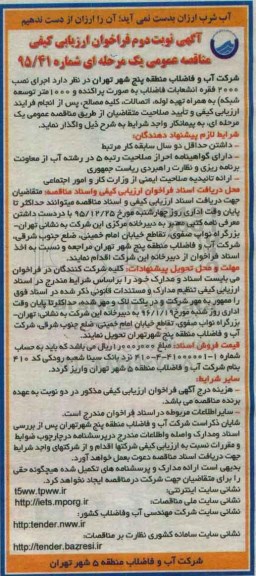 آب شرب ارزان بدست نمی آید؛ آن را ارزان از دست ندهیم
آگهی نوبت دوم فراخوان ارزیابی کیفی
مناقصه عمومی یک مرحله ای شماره ۹۵/۴۱
شرکت آب و فاضلاب منطقه پنج شهر تهران در نظر دارد اجرای نصب
۲۰۰۰ فقره انشعابات فاضلاب به صورت پراکنده و ۱۰۰۰متر توسعه
شبکه) به همراه تهیه لوله، اتصالات، کلیه مصالح، پس از انجام فرایند
ارزیابی کیفی و تأیید صلاحیت متقاضیان از طریق مناقصه عمومی یک
مرحله ای، به پیمانکار واجد شرایط به شرح ذیل واگذار نماید.
شرایط لازم پیشنهاد دهندگان:
- داشتن حداقل دو سال سابقه کار مرتبط
- دارای گواهینامه احراز صلاحیت رتبه ۵ در رشته آب از معاونت
برنامه ریزی و نظارت راهبردی ریاست جمهوری
- ارائه تائیدیه صلاحیت ایمنی از وزارت کار و امور اجتماعی
محل دریافت اسناد فراخوان ارزیابی کیفی واسناد مناقصه: متقاضیان
جهت دریافت اسناد ارزیابی کیفی و اسناد مناقصه میتوانند حداکثر تا
پایان وقت اداری روز چهارشنبه مورخ ۹۵/۱۲/۲۵ با دردست داشتن
معرفی نامه کتبی معتبر به دبیرخانه مرکزی این شرکت به نشانی تهران-
بزرگراه نواب صفوی، تقاطع خیابان امام خمینی، ضلع جنوب شرقی،
شرکت آب و فاضلاب منطقه پنج شهر تهران مراجعه و نسبت به اخذ
اسناد فراخوان از دبیرخانه این شرکت اقدام نمایند.
مهلت و محل تحویل پیشنهادات: کلیه شرکت کنندگان در فراخوان
می بایست اسناد و مدارک خود را بر اساس شرایط مندرج در اسناد
ارزیابی کیفی تنظیم مدارک و مستندات قانونی ذکر شده در اسناد فوق
را ممهور به مهر شرکت و در پاکت لاک و مهر شده، حداکثر تا پایان وقت
اداری روز شنبه مورخ ۹۶/۱/۱۹ به دبیرخانه این شرکت به نشانی، تهران-
بزرگراه نواب صفوی، تقاطع خیابان امام خمینی، ضلع جنوب شرقی، شرکت
آب و فاضلاب منطقه پنج شهرتهران تحویل نمایند.
قیمت فروش اسناد: مبلغ ریال می باشد که باید به حساب
شماره نزد بانک سینا شعبه رودکی کد ۴۱۰
بنام شرکت آب و فاضلاب منطقه ۵ شهر تهران واریز گردد.
سایر شرایط:
- هزینه درج آگهی فراخوان ارزیابی کیفی مذکور در دو نوبت به عهده
برنده مناقصه می باشد.
- سایر اطلاعات مربوطه در اسناد فراخوان مندرج است.
شایان ذکر است شرکت آب و فاضلاب منطقه پنج شهرتهران پس از بررسی
اسناد ومدارک واصله واطلاعات مندرج درپرسشنامه درچارچوب ضوابط
و مقررات نسبت به ارزیابی کیفی شرکتها اقدام و از شرکتهای واجد شرایط
جهت دریافت اسناد مناقصه دعوت بعمل خواهد آورد.
بدیهی است ارائه مدارک و پرسشنامه های تکمیل شده هیچگونه حقی
را برای متقاضیان جهت شرکت در مناقصه ایجاد نخواهد کرد.
نشانی سایت اینترنتی: t5ww.tpww.ir
نشانی سایت ملی مناقصات: http://iets.mporg.ir
نشانی سایت شرکت مهندسی آب وفاضلاب کشور:
http:tender.nww.ir
نشانی سایت سامانه کشوری نظارت بر مناقصات:
http://tender.bazresi.ir
شرکت آب و فاضلاب منطقه ۵ شهر تهران